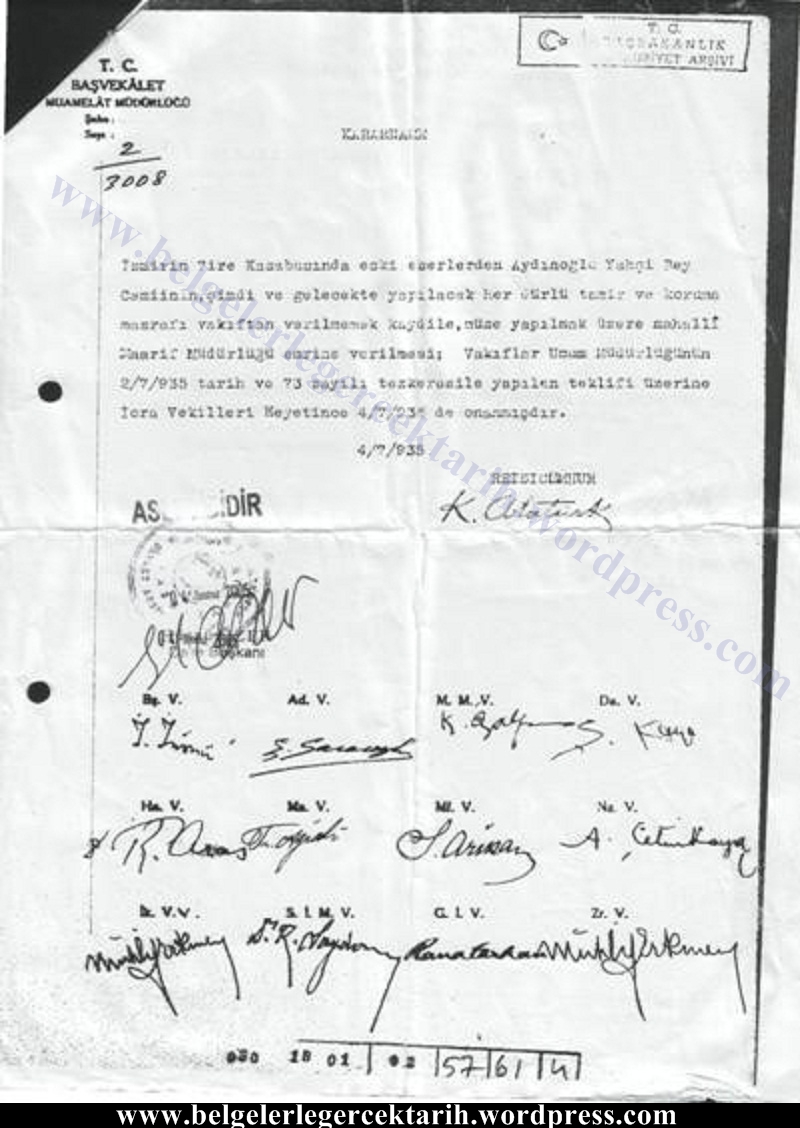 T. C.
BAŞVEKÂLET
MUAMELÂT MÜDÜRLÜĞÜ
Şube :
Sayı :
2
3008
T. C.
BAŞBAKANLIK
CUMHURİYET ARŞİVİ
KARARNAME
İzmirin Tire Kasabasında eski eserlerden Aydınoglu Yahşi Bey
Camiinin,şimdi ve gelecekte yapılacak her dürlü tamir ve koruma
masrafı vakıftan verilmemek kaydile,müze yapılmak üzere mahallî
Maarif Müdürlüğü emrine verilmesi; Vakıflar Umum Müdürlüğünün
2/7/935 tarih ve 73 sayılı tezkeresile yapılan teklifi üzerine
İcra Vekilleri Heyetince 4/7/935 de onanmışdır.
4/7/935
REİSİCÜMHUR
K. Atatürk
ASLI GİBİDİR
Daire Başkanı
Bş. V. Ad. V. M. M. V. Da. V.
İ. İnönü Ş. Saracoğlu K. Özalp Ş. Kaya
Ha. V. Ma. V. Mf. V. Na. V.
R. Aras S. Arıkan A. Çetinkaya
İk. V.V. S. İ. M. V. G. İ. V. Zr. V.
Muhlis Erkmen Dr. R. Saydam Rana Tarhan Muhlis Erkmen
030 18 01 02 57 61 4
www.belgelerlegercektarih.wordpress.com
www.belgelerlegercektarih.wordpress.com